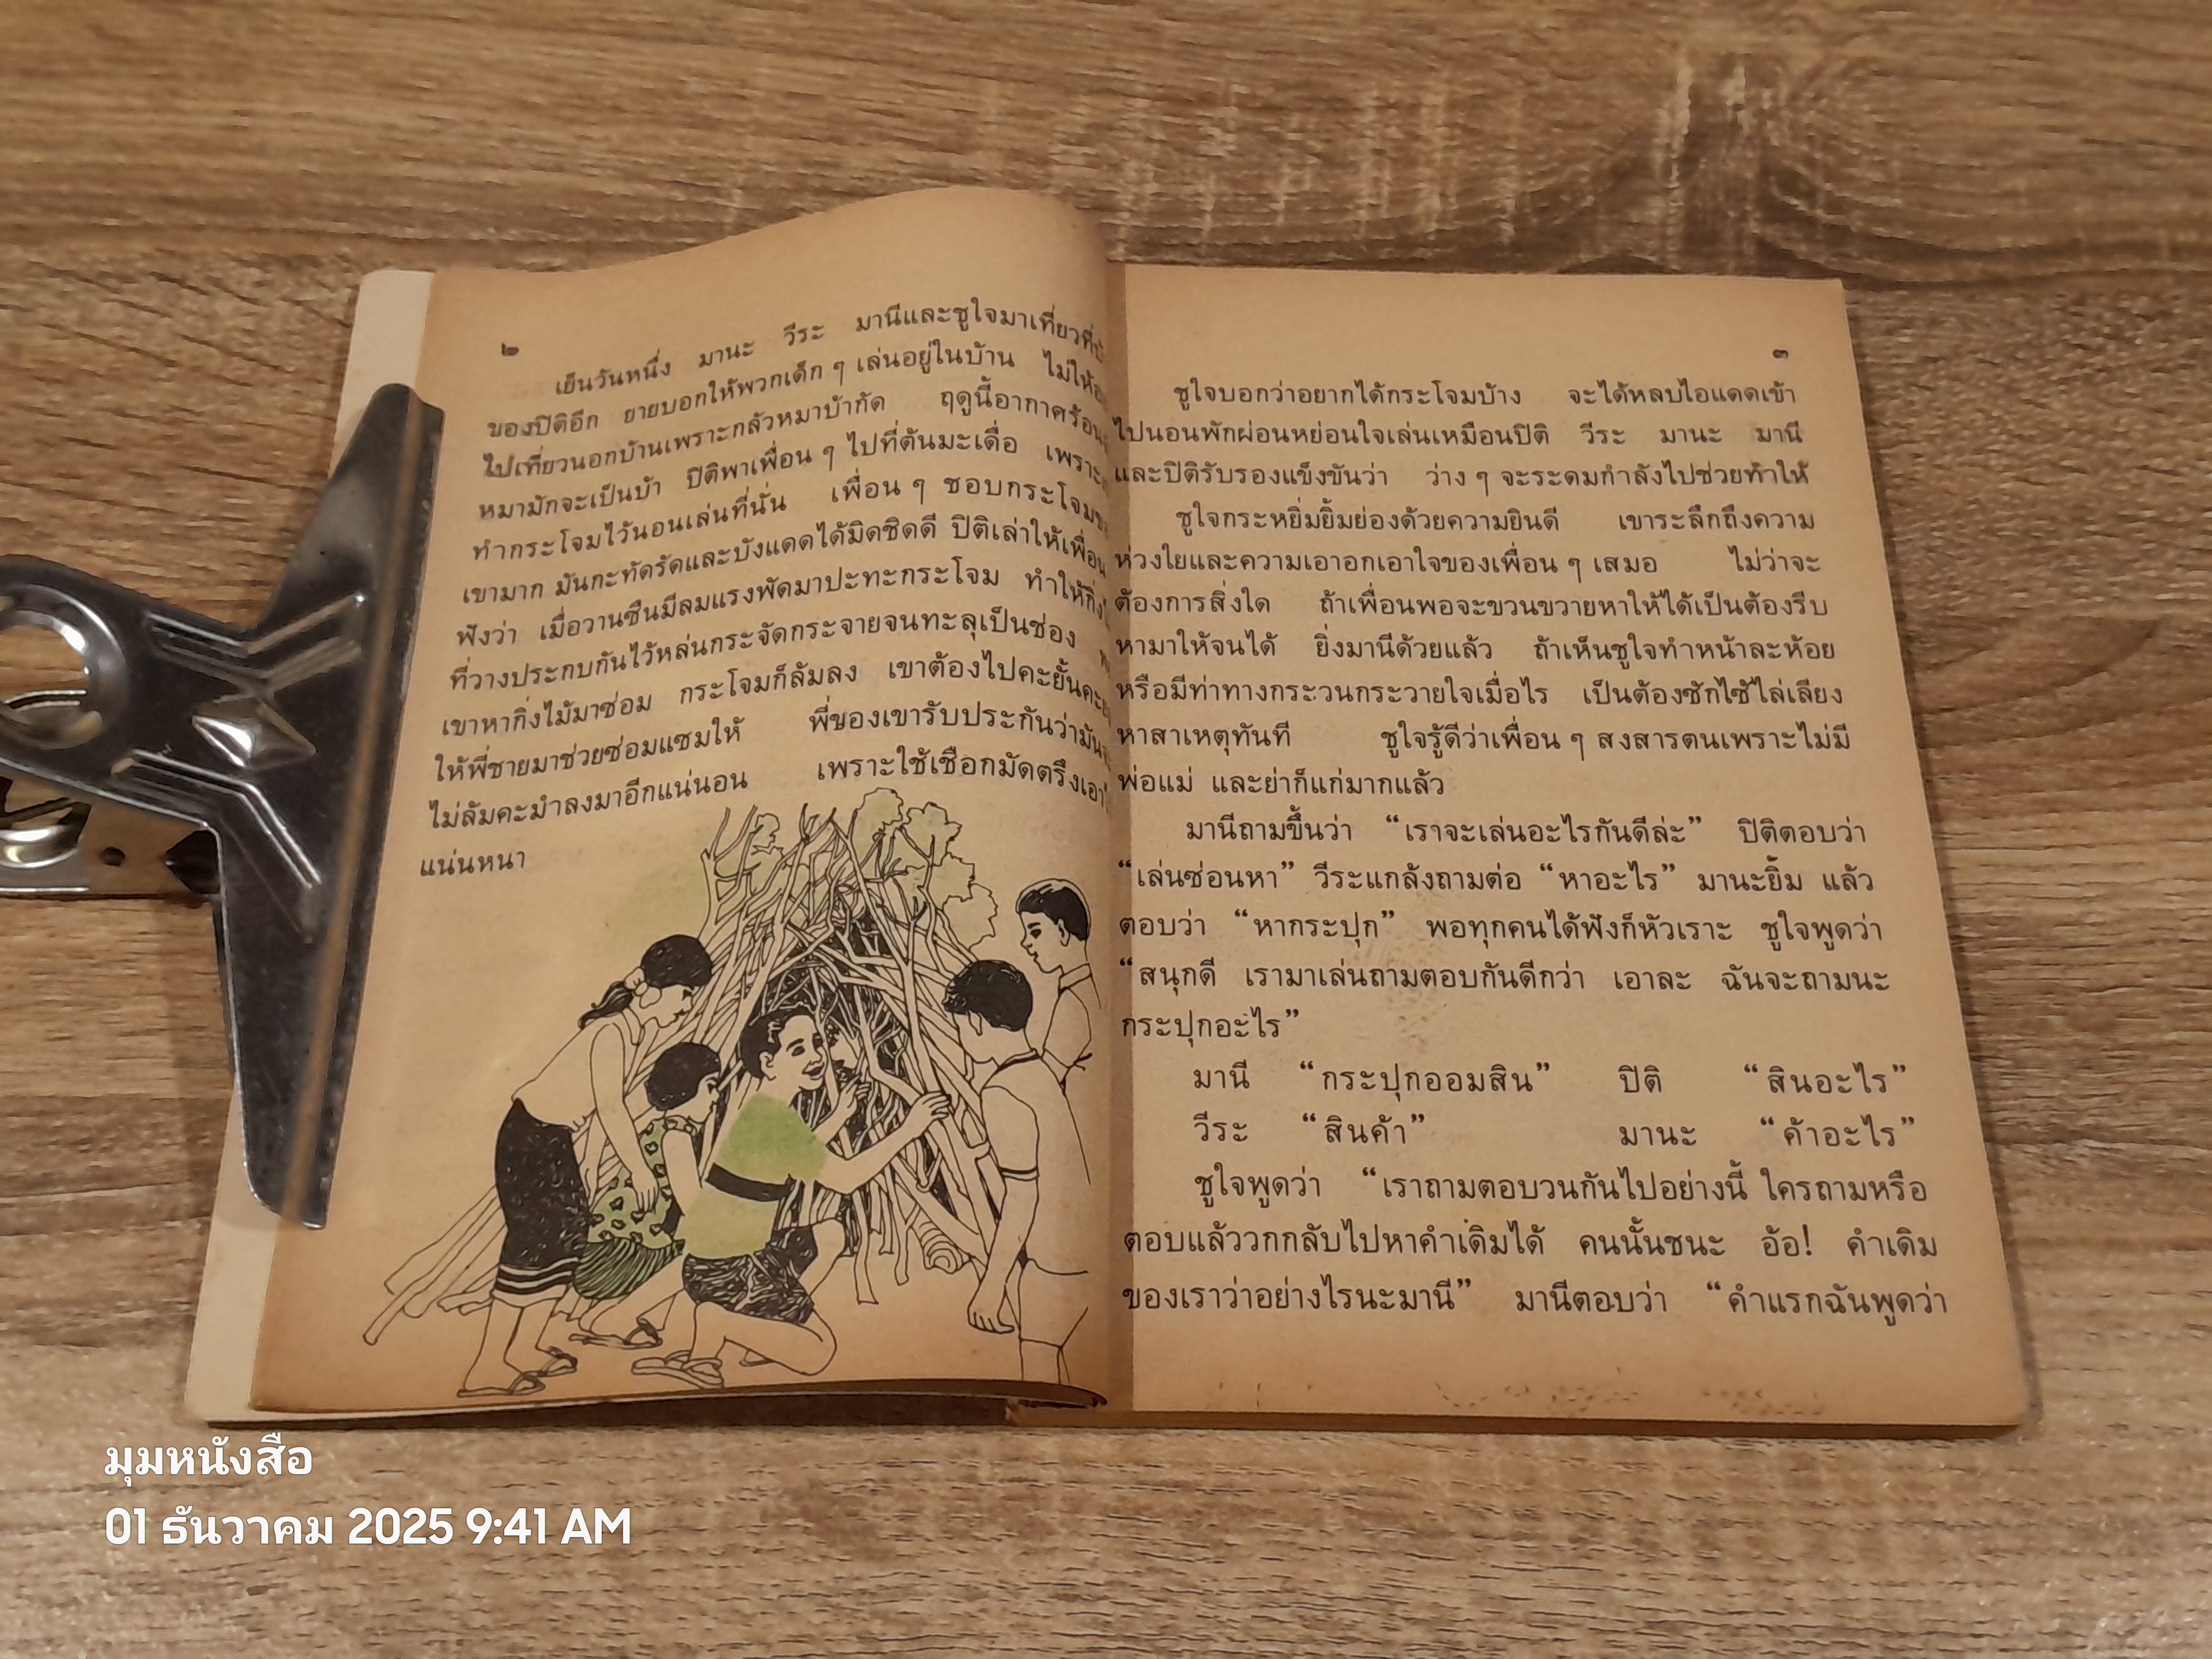 ๒
เย็นวันหนึ่ง มานะ วีระ มานีและชูใจมาเที่ยวที่
ของปิติอีก ยายบอกให้พวกเด็ก ๆ เล่นอยู่ในบ้าน ไม่ให้
ไปเที่ยวนอกบ้านเพราะกลัวหมาบ้ากัด ฤดูนี้อากาศร้อน
หมามักจะเป็นบ้า ปิติพาเพื่อน ๆ ไปที่ต้นมะเดื่อ เพราะ
ทำกระโจมไว้นอนเล่นที่นั่น เพื่อน ๆ ชอบกระโจม
เขามาก มันกะทัดรัดและบังแดดได้มิดชิดดี ปิติเล่าให้เพื่อน
ฟังว่า เมื่อวานซืนมีลมแรงพัดมาปะทะกระโจม ทำให้กิ่ง
ที่วางประกบกันไว้หล่นกระจัดกระจายจนทะลุเป็นช่อง
เขาหากิ่งไม้มาซ่อม กระโจมก็ล้มลง เขาต้องไปคะยั้นคะ
ให้พี่ชายมาช่วยซ่อมแซมให้ พี่ของเขารับประกันว่ามัน
ไม่ล้มคะมำลงมาอีกแน่นอน เพราะใช้เชือกมัดตรึงเอา
แน่นหนา
๓
ชูใจบอกว่าอยากได้กระโจมบ้าง จะได้หลบไอแดดเข้า
ไปนอนพักผ่อนหย่อนใจเล่นเหมือนปิติ วีระ มานะ มานี
และปิติรับรองแข็งขันว่า ว่าง ๆ จะระดมกำลังไปช่วยทำให้
ชูใจกระหยิ่มยิ้มย่องด้วยความยินดี เขาระลึกถึงความ
ห่วงใยและความเอาอกเอาใจของเพื่อน ๆ เสมอ ไม่ว่าจะ
ต้องการสิ่งใด ถ้าเพื่อนพอจะขวนขวายหาให้ได้เป็นต้องรีบ
หามาให้จนได้ ยิ่งมานีด้วยแล้ว ถ้าเห็นชูใจทำหน้าละห้อย
หรือมีท่าทางกระวนกระวายใจเมื่อไร เป็นต้องซักไซ้ไล่เลียง
หาสาเหตุทันที ชูใจรู้ดีว่าเพื่อน ๆ สงสารตนเพราะไม่มี
พ่อแม่ และย่าก็แก่มากแล้ว
มานีถามขึ้นว่า “เราจะเล่นอะไรกันดีล่ะ” ปิติตอบว่า
“เล่นซ่อนหา” วีระแกล้งถามต่อ “หาอะไร” มานะยิ้ม แล้ว
ตอบว่า “หากระปุก” พอทุกคนได้ฟังก็หัวเราะ ชูใจพูดว่า
“สนุกดี เรามาเล่นถามตอบกันดีกว่า เอาละ ฉันจะถามนะ
กระปุกอะไร”
มานี “กระปุกออมสิน” ปิติ “สินอะไร”
วีระ “สินค้า” มานะ “ค้าอะไร”
ชูใจพูดว่า “เราถามตอบวนกันไปอย่างนี้ ใครถามหรือ
ตอบแล้ววกกลับไปหาคำเดิมได้ คนนั้นชนะ อ้อ! คำเดิม
ของเราว่าอย่างไรนะมานี” มานีตอบว่า “คำแรกฉันพูดว่า
มุมหนังสือ
01 ธันวาคม 2025 9:41 AM